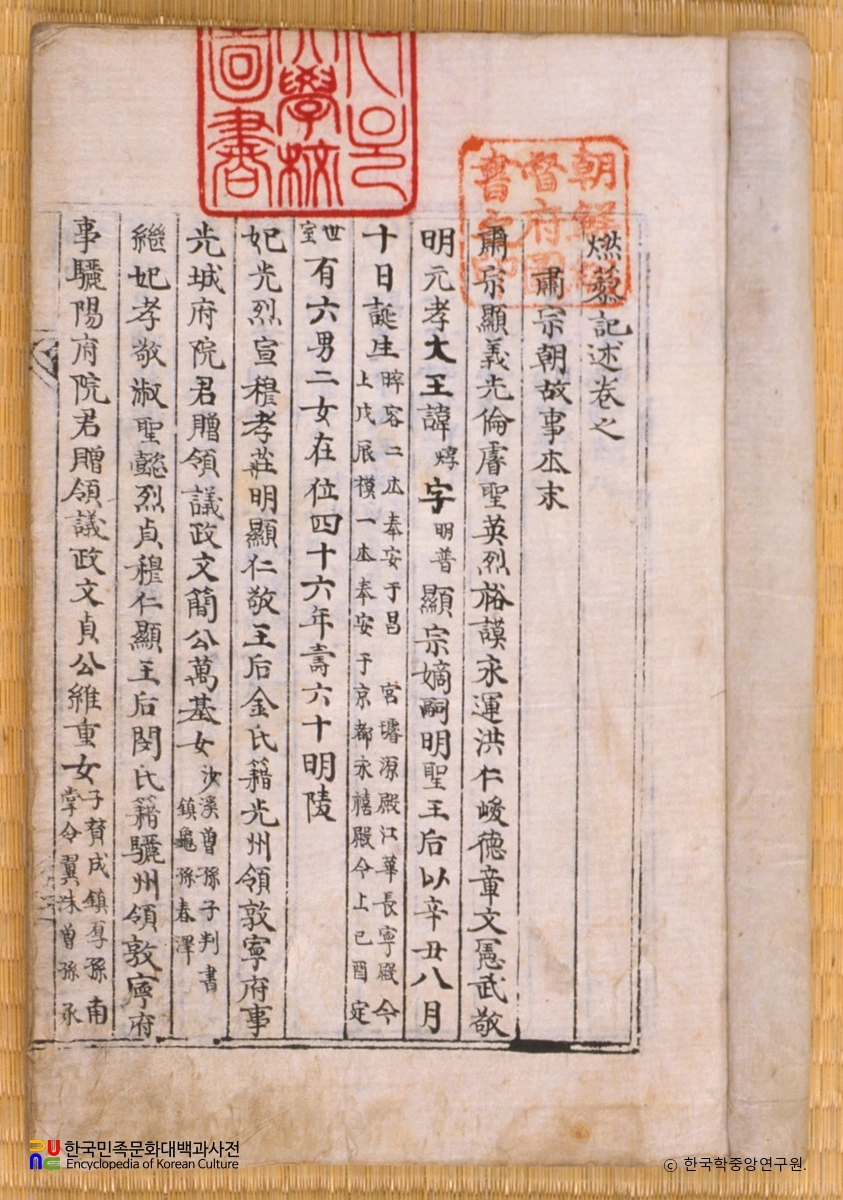 燃藜記述卷之
肅宗朝故事本末
肅宗顯義光倫睿聖英烈裕謨永運洪仁峻德章文憲武敬
明元孝大王諱焞字明普顯宗嫡嗣明聖王后以辛丑八月
十日誕生晬容二本奉安于昌 宮璿源殿江華長寧殿今
上戊辰模一本奉安于京都永禧殿今上己酉定
世
室有六男二女在位四十六年壽六十明陵
妃光烈宣穆孝莊明顯仁敬王后金氏籍光州領敦寧府事
光城府院君贈領議政文簡公萬基女沙溪曾孫子判書
鎭龜孫春澤
繼妃孝敬淑聖懿烈貞穆仁顯王后閔氏籍驪州領敦寧府
事驪陽府院君贈領議政文貞公維重女子贊成鎭厚孫南
掌令翼洙曾孫承
朝鮮總督府圖書之印
大學校圖書
한국민족문화대백과사전
Encyclopedia of Korean Culture
© 한국학중앙연구원.